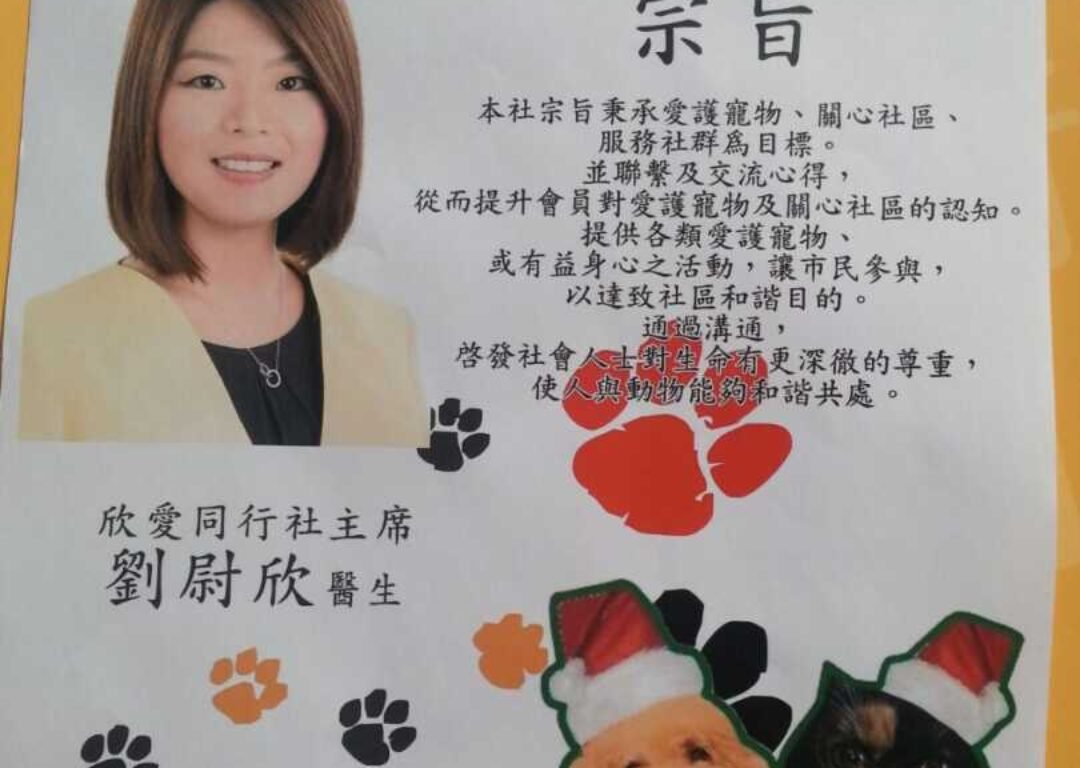 宗旨
本社宗旨秉承愛護寵物、關心社區、
服務社群爲目標。
並聯繫及交流心得，
從而提升會員對愛護寵物及關心社區的認知。
提供各類愛護寵物、
或有益身心之活動，讓市民參與，
以達致社區和諧目的。
通過溝通，
啓發社會人士對生命有更深徹的尊重，
使人與動物能夠和諧共處。
欣愛同行社主席
劉尉欣醫生